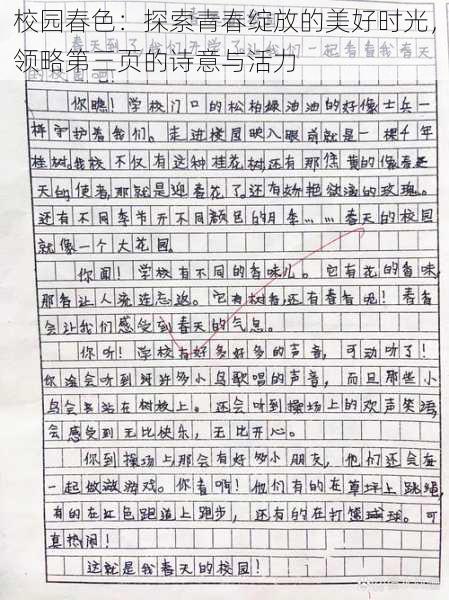 校园春色：探索青春绽放的美好时光，
领略第三页的诗意与活力
春天到了我们开学了让我们一起看看我春天
的校园吧
你瞧！学校门口的松柏绿油油的好像士兵一
样守护着我们。走进校园映入眼前就是一棵4年
桂树，我校不仅有这种桂花树，还有那焦黄的像春
天的使者，那就是迎春花了。还有娇艳欲滴的玫瑰。
还有不同季节开不同颜色的月季……春天的校园
就像一个大花园。
你闻！学校有不同的香味儿。它有花的香味，
那香让人流连忘返。它有树香，还有春香呢！春香
会让我们感受到春天的气息。
你听！学校有好多好多的声音，可动听了！
你准会听到许许多小鸟歌唱的声音，而且那些小
鸟会站在树枝上。还会听到操场上的欢声笑语，
会感受到无比快乐，无比开心。
你到操场上那会有好多小朋友，他们还会在
一起做游戏。你看啊！他们有的在草坪上跳绳，
有的在红色跑道上跑步，还有的在打篮球。可
真热闹！
这就是我春天的校园！